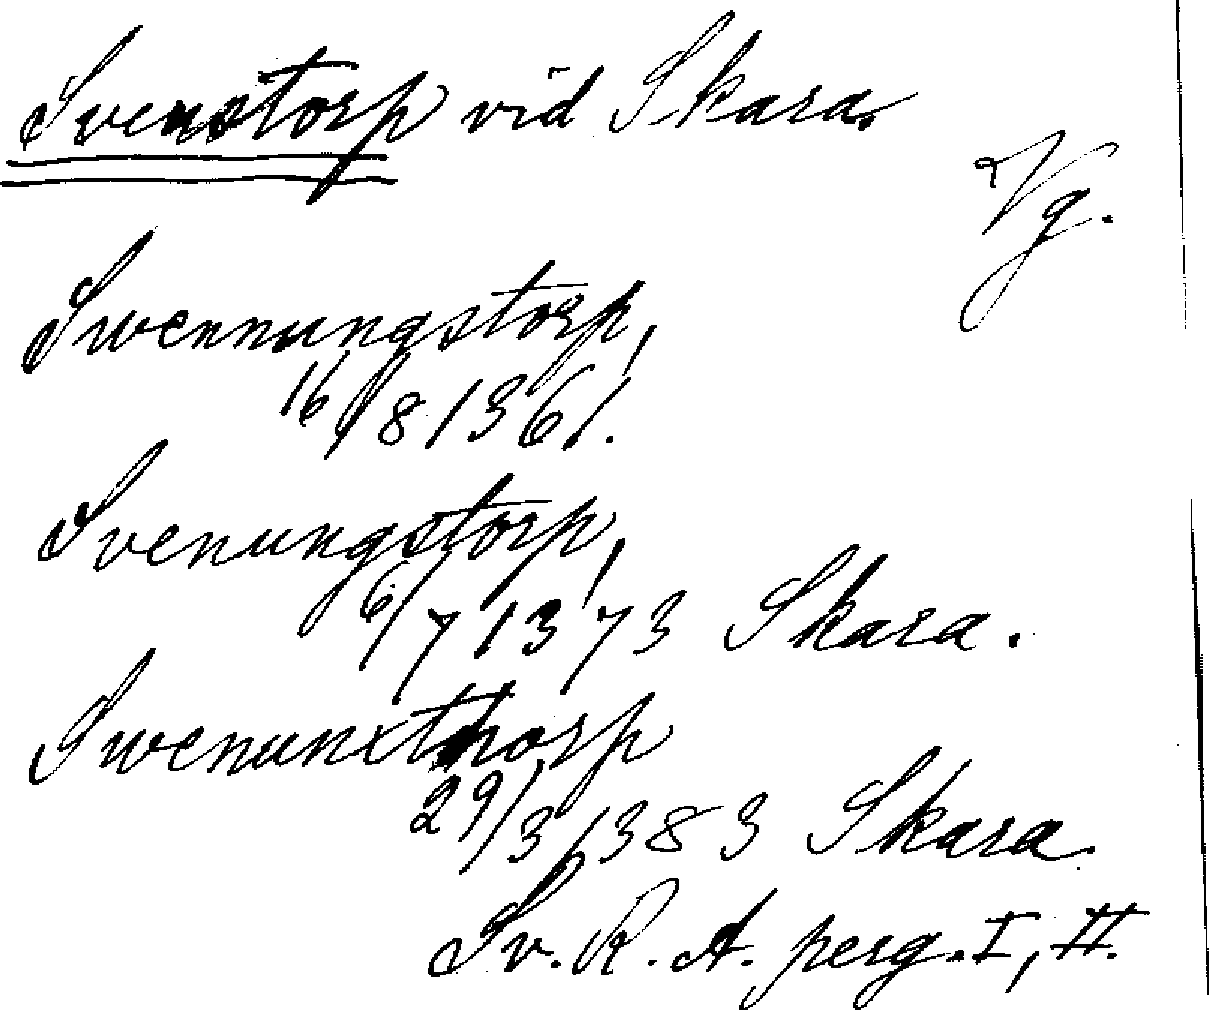 Svenstorp vid Skara.
Vg.
Swennungstorp,
16/8 1361.
Svenungstorp,
6/7 1373 Skara.
Swenunxthorp
29/3 1383 Skara.
Sv. R. A. perg. I, II.